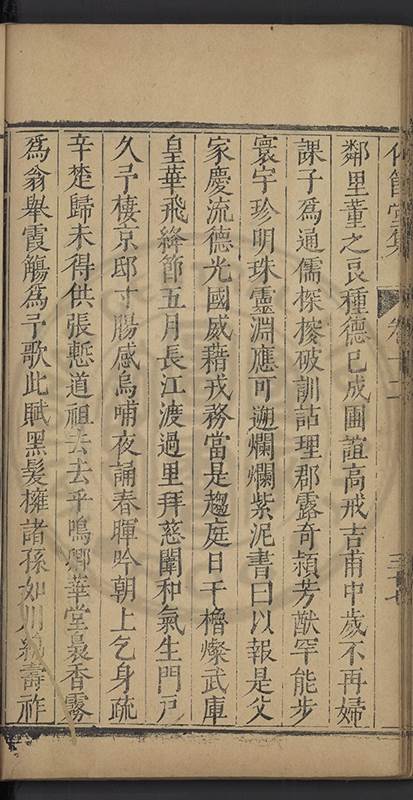 竹管堂集 卷十二 三十七
鄰里董之哀種德已成圃誼高戒吉甫中歲不再婦
課子爲通儒探搉破訓詁理郡露奇穎芳猷罕能步
寰宇珍明珠靈淵應可遡爛爛紫泥書曰以報是父
家慶流德光國威藉戎務當是趨庭日干櫓燦武庫
皇華飛絳節五月長江渡過里拜慈闈和氣生門戸
久予棲京邸寸腸感烏哺夜誦春暉吟朝上乞身疏
辛楚歸未得供張慙道祖去去乎鳴卿華堂裊香霧
爲翁舉霞觴爲予歌此賦黑髮擁諸孫如川純壽祚